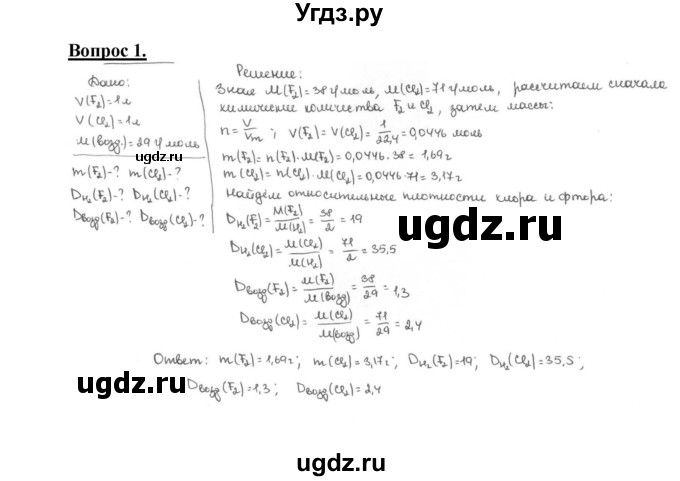 Угдз.ру
Вопрос 1.
Дано:
V(F₂)=1л
V(Cl₂)=1л
M(возд.)=29 г/моль
m(F₂)-? m(Cl₂)-?
D_H₂(F₂)-? D_H₂(Cl₂)-?
D_возд(F₂)-? D_возд(Cl₂)-?
Решение:
Зная M(F₂)=38 г/моль, M(Cl₂)=71 г/моль, рассчитаем сначала
химические количества F₂ и Cl₂, затем массы:
n = V/Vm ; V(F₂)=V(Cl₂)= 1/22,4 =0,0446 моль
m(F₂)=n(F₂)·M(F₂)=0,0446·38=1,69г
m(Cl₂)=n(Cl₂)·M(Cl₂)=0,0446·71=3,17г
Найдём относительные плотности хлора и фтора:
D_H₂(F₂)= M(F₂)/M(H₂) = 38/2 = 19
D_H₂(Cl₂)= M(Cl₂)/M(H₂) = 71/2 = 35,5
D_возд(F₂)= M(F₂)/M(возд) = 38/29 = 1,3
D_возд(Cl₂)= M(Cl₂)/M(возд) = 71/29 = 2,4
Ответ: m(F₂)=1,69г; m(Cl₂)=3,17г; D_H₂(F₂)=19; D_H₂(Cl₂)=35,5;
D_возд(F₂)=1,3; D_возд(Cl₂)=2,4
gdz.ru
ugdz.ru
ugdz.ru
ugdz.ru
ugdz.ru
ugdz.ru